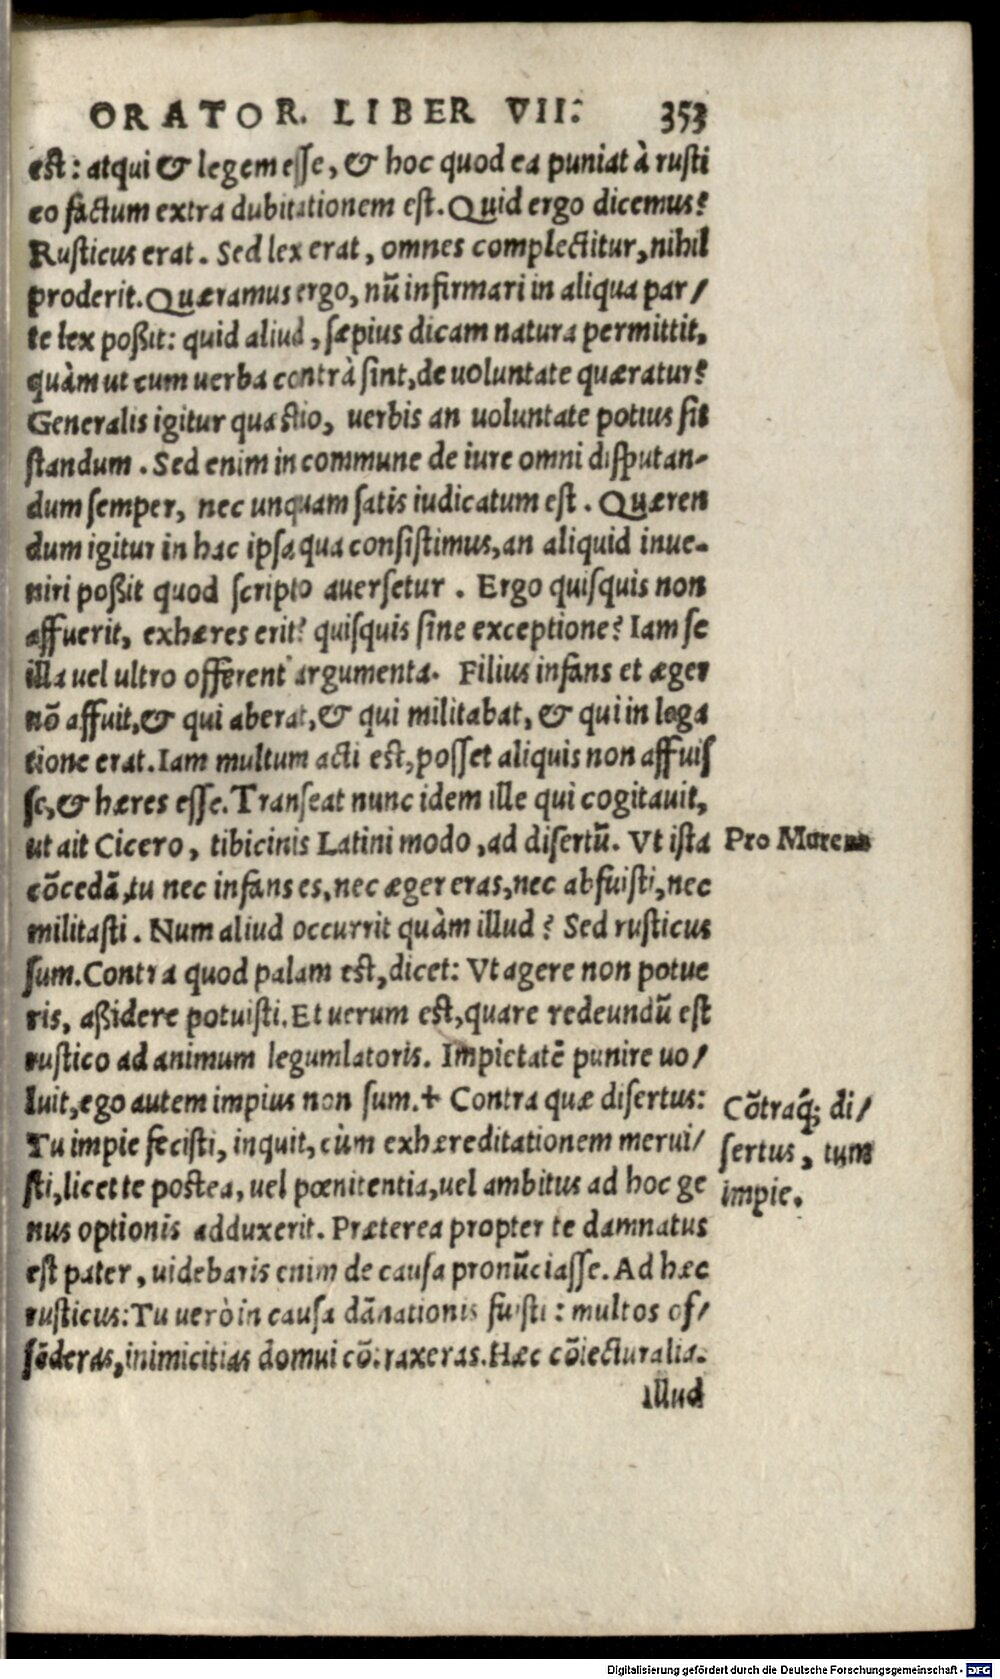 ORATOR. LIBER VII. 353
est: atqui & legem esse, & hoc quod ea puniat à rusti
co factum extra dubitationem est. Quid ergo dicemus?
Rusticus erat. Sed lex erat, omnes complectitur, nihil
proderit. Quæramus ergo, nū infirmari in aliqua par/
te lex poßit: quid aliud, sæpius dicam natura permittit,
quàm ut cum uerba contrà sint, de uoluntate quæratur?
Generalis igitur quæstio, uerbis an uoluntate potius sit
standum. Sed enim in commune de iure omni disputan-
dum semper, nec unquam satis iudicatum est. Quæren
dum igitur in hac ipsa qua consistimus, an aliquid inue-
niri poßit quod scripto auersetur. Ergo quisquis non
affuerit, exhæres erit? quisquis sine exceptione? Iam se
illa uel ultro offerent argumenta. Filius infans et æger
nō affuit, & qui aberat, & qui militabat, & qui in lega
tione erat. Iam multum acti est, posset aliquis non affuis
se, & hæres esse. Transeat nunc idem ille qui cogitauit,
ut ait Cicero, tibicinis Latini modo, ad disertū. Vt ista
cōcedā, tu nec infans es, nec æger eras, nec abfuisti, nec
militasti. Num aliud occurrit quàm illud? Sed rusticus
sum. Contra quod palam est, dicet: Vt agere non potue
ris, aßidere potuisti. Et uerum est, quare redeundū est
rustico ad animum legumlatoris. Impietatē punire uo/
luit, ego autem impius non sum.+ Contra quæ disertus:
Tu impie fecisti, inquit, cùm exhæreditationem merui/
sti, licet te postea, uel pœnitentia, uel ambitus ad hoc ge
nus optionis adduxerit. Præterea propter te damnatus
est pater, uidebaris enim de causa pronūciasse. Ad hæc
rusticus: Tu uerò in causa dānationis fuisti: multos of/
fēderas, inimicitias domui cōtraxeras. Hæc cōiecturalia.
illud
Pro Murena
Cōtraq̃; di/
sertus, tum
impie.
Digitalisierung gefördert durch die Deutsche Forschungsgemeinschaft - DFG